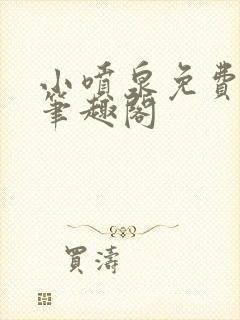 小噴泉免費
筆趣閣
買濤